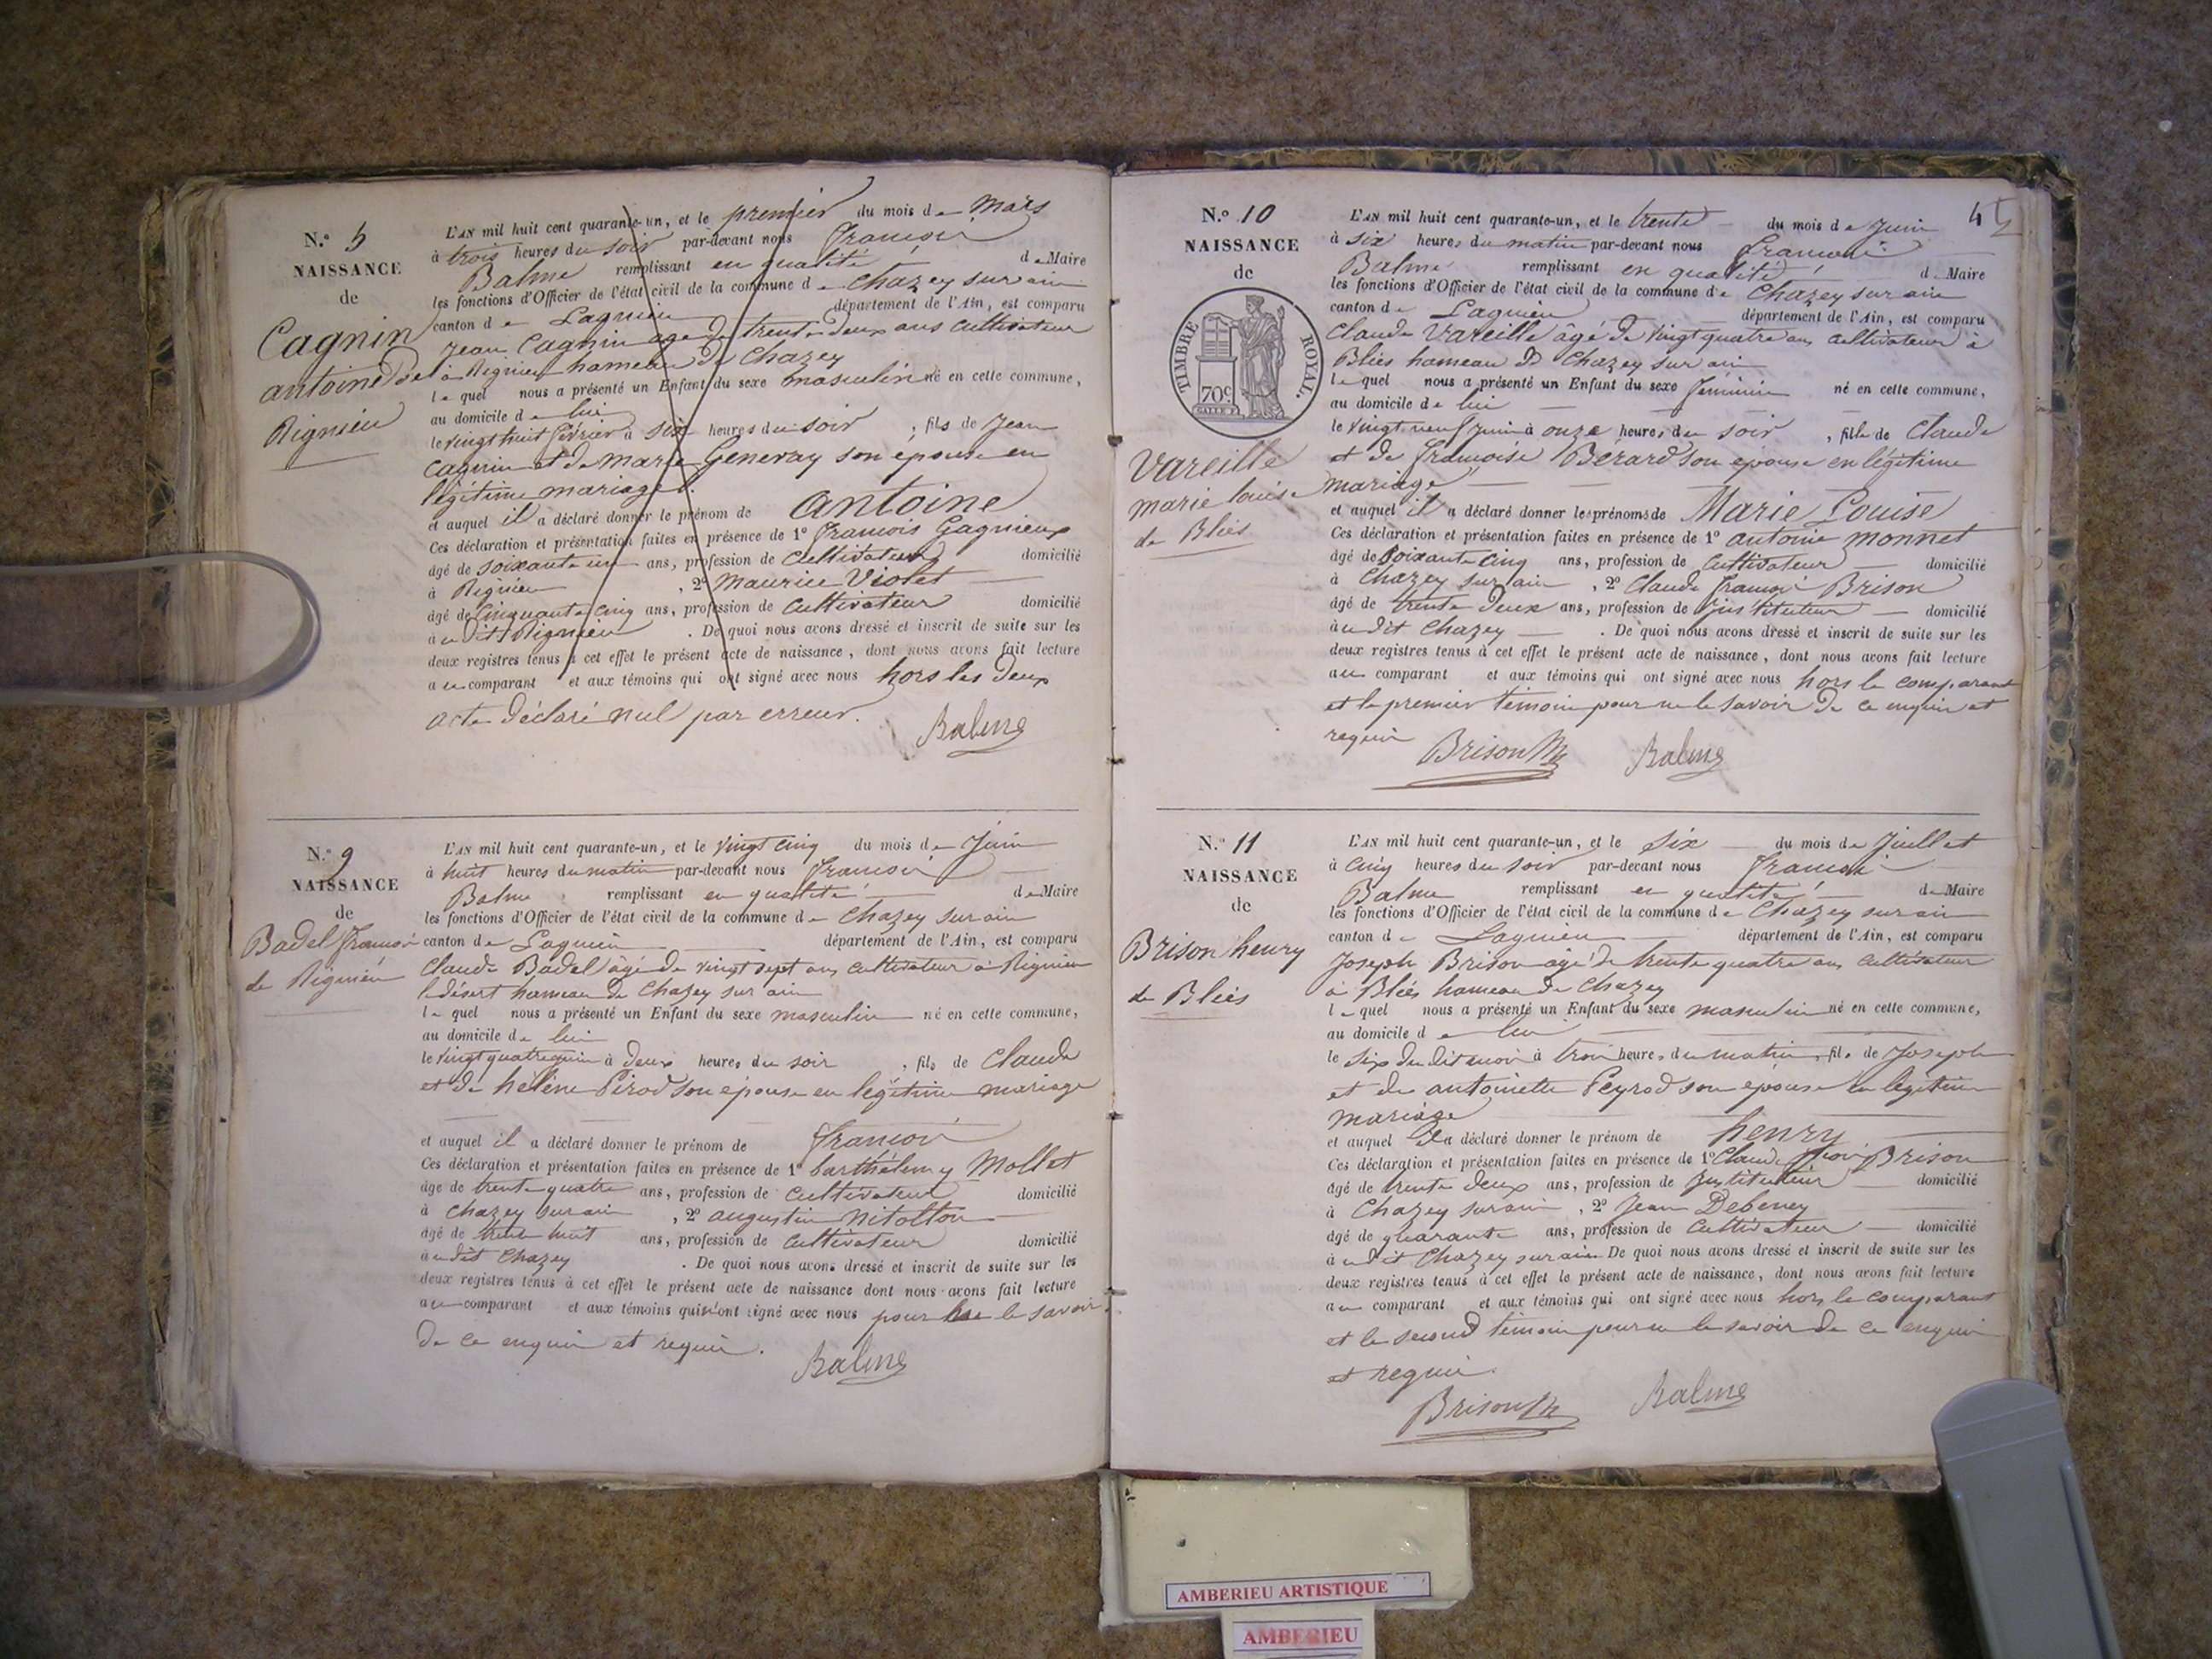 N.º 5
NAISSANCE
de
Cagnin
antoine de
Rignieu
L'AN mil huit cent quarante-un, et le premier du mois de Mars
à trois heures du soir par-devant nous françois
Balme remplissant en qualité de Maire
les fonctions d'Officier de l'état civil de la commune de Chazey sur ain
canton de Lagnieu département de l'Ain, est comparu
Jean Cagnin âgé de trente deux ans Cultivateur
à Rignieu hameau de Chazey
lequel nous a présenté un Enfant du sexe masculin né en cette commune,
au domicile de lui
le vingt huit février à six heures du soir , fils de Jean
Cagnin et de marie Genevay son épouse en
légitime mariage
et auquel il a déclaré donner le prénom de antoine
Ces déclaration et présentation faites en présence de 1º francois Gagnieux
âgé de soixante un ans, profession de Cultivateur domicilié
à Rignieu , 2º Maurice Violet
âgé de Cinquante cinq ans, profession de Cultivateur domicilié
au dit Rignieu . De quoi nous avons dressé et inscrit de suite sur les
deux registres tenus à cet effet le présent acte de naissance, dont nous avons fait lecture
au comparant et aux témoins qui ont signé avec nous hors les deux
acte déclaré nul par erreur.
Balme
N.º 9
NAISSANCE
de
Badel françois
de Rignieu
L'AN mil huit cent quarante-un, et le vingt cinq du mois de Juin
à huit heures du matin par-devant nous françois
Balme remplissant en qualité de Maire
les fonctions d'Officier de l'état civil de la commune de Chazey sur ain
canton de Lagnieu département de l'Ain, est comparu
Claude Badel âgé de vingt sept ans cultivateur à Rignieu
le désert hameau de Chazey sur ain
lequel nous a présenté un Enfant du sexe masculin né en cette commune,
au domicile de lui
le vingt quatre juin à deux heures du soir , fils de Claude
et de hélène Pérod son épouse en légitime mariage
et auquel il a déclaré donner le prénom de françois
Ces déclaration et présentation faites en présence de 1º barthélemy Mollet
âgé de trente quatre ans, profession de Cultivateur domicilié
à Chazey sur ain , 2º augustin Nitolton
âgé de trente huit ans, profession de Cultivateur domicilié
au dit Chazey . De quoi nous avons dressé et inscrit de suite sur les
deux registres tenus à cet effet le présent acte de naissance dont nous avons fait lecture
au comparant et aux témoins qui n'ont signé avec nous pour ne le savoir
de ce enquis et requis.
Balme
45
N.º 10
NAISSANCE
de
TIMBRE ROYAL.
70c
Vareille
marie louise
de Bliès
L'AN mil huit cent quarante-un, et le trente du mois de Juin
à six heures du matin par-devant nous françois
Balme remplissant en qualité de Maire
les fonctions d'Officier de l'état civil de la commune de Chazey sur ain
canton de Lagnieu département de l'Ain, est comparu
Claude Vareille âgé de vingt quatre ans cultivateur à
Bliès hameau de Chazey sur ain
lequel nous a présenté un Enfant du sexe féminin né en cette commune,
au domicile de lui
le vingt neuf juin à onze heures du soir , fille de Claude
et de françoise Bérard son épouse en légitime
mariage
et auquel il a déclaré donner les prénoms de Marie Louise
Ces déclaration et présentation faites en présence de 1º antoine monnet
âgé de soixante cinq ans, profession de Cultivateur domicilié
à Chazey sur ain , 2º Claude françois Brison
âgé de trente deux ans, profession de Instituteur domicilié
au dit Chazey . De quoi nous avons dressé et inscrit de suite sur les
deux registres tenus à cet effet le présent acte de naissance, dont nous avons fait lecture
au comparant et aux témoins qui ont signé avec nous hors le comparant
et le premier témoin pour ne le savoir de ce enquis et
requis
Brison Balme
N.º 11
NAISSANCE
de
Brison henry
de Bliès
L'AN mil huit cent quarante-un, et le six du mois de Juillet
à cinq heures du soir par-devant nous françois
Balme remplissant en qualité de Maire
les fonctions d'Officier de l'état civil de la commune de Chazey sur ain
canton de Lagnieu département de l'Ain, est comparu
Joseph Brison âgé de trente quatre ans cultivateur
à Bliès hameau de Chazey
lequel nous a présenté un Enfant du sexe masculin né en cette commune,
au domicile de lui
le six du dit mois à trois heures du matin, fils de Joseph
et de antoinette Peyrod son épouse en légitime
mariage
et auquel il a déclaré donner le prénom de henry
Ces déclaration et présentation faites en présence de 1º Claude Brison
âgé de trente deux ans, profession de Instituteur domicilié
à Chazey sur ain , 2º Jean Debeney
âgé de quarante ans, profession de Cultivateur domicilié
au dit Chazey sur ain De quoi nous avons dressé et inscrit de suite sur les
deux registres tenus à cet effet le présent acte de naissance, dont nous avons fait lecture
au comparant et aux témoins qui ont signé avec nous hors le comparant
et le second témoin pour ne le savoir de ce enquis
et requis.
Brison Balme
AMBERIEU ARTISTIQUE
AMBERIEU